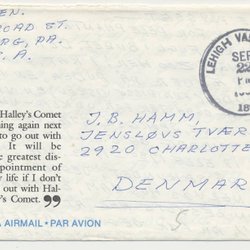 EN.
ROAD ST.
RG, PA.
. A.
LEHIGH VA
SEP
22
PM
Halley's Comet
ing again next
to go out with
It will be
e greatest dis-
pointment of
life if I don't
out with Hal-
y's Comet.”
J. B. HAMM,
JENSLØVS TVÆR
2920 CHARLOTTE
DENMAR
5
AIRMAIL • PAR AVION